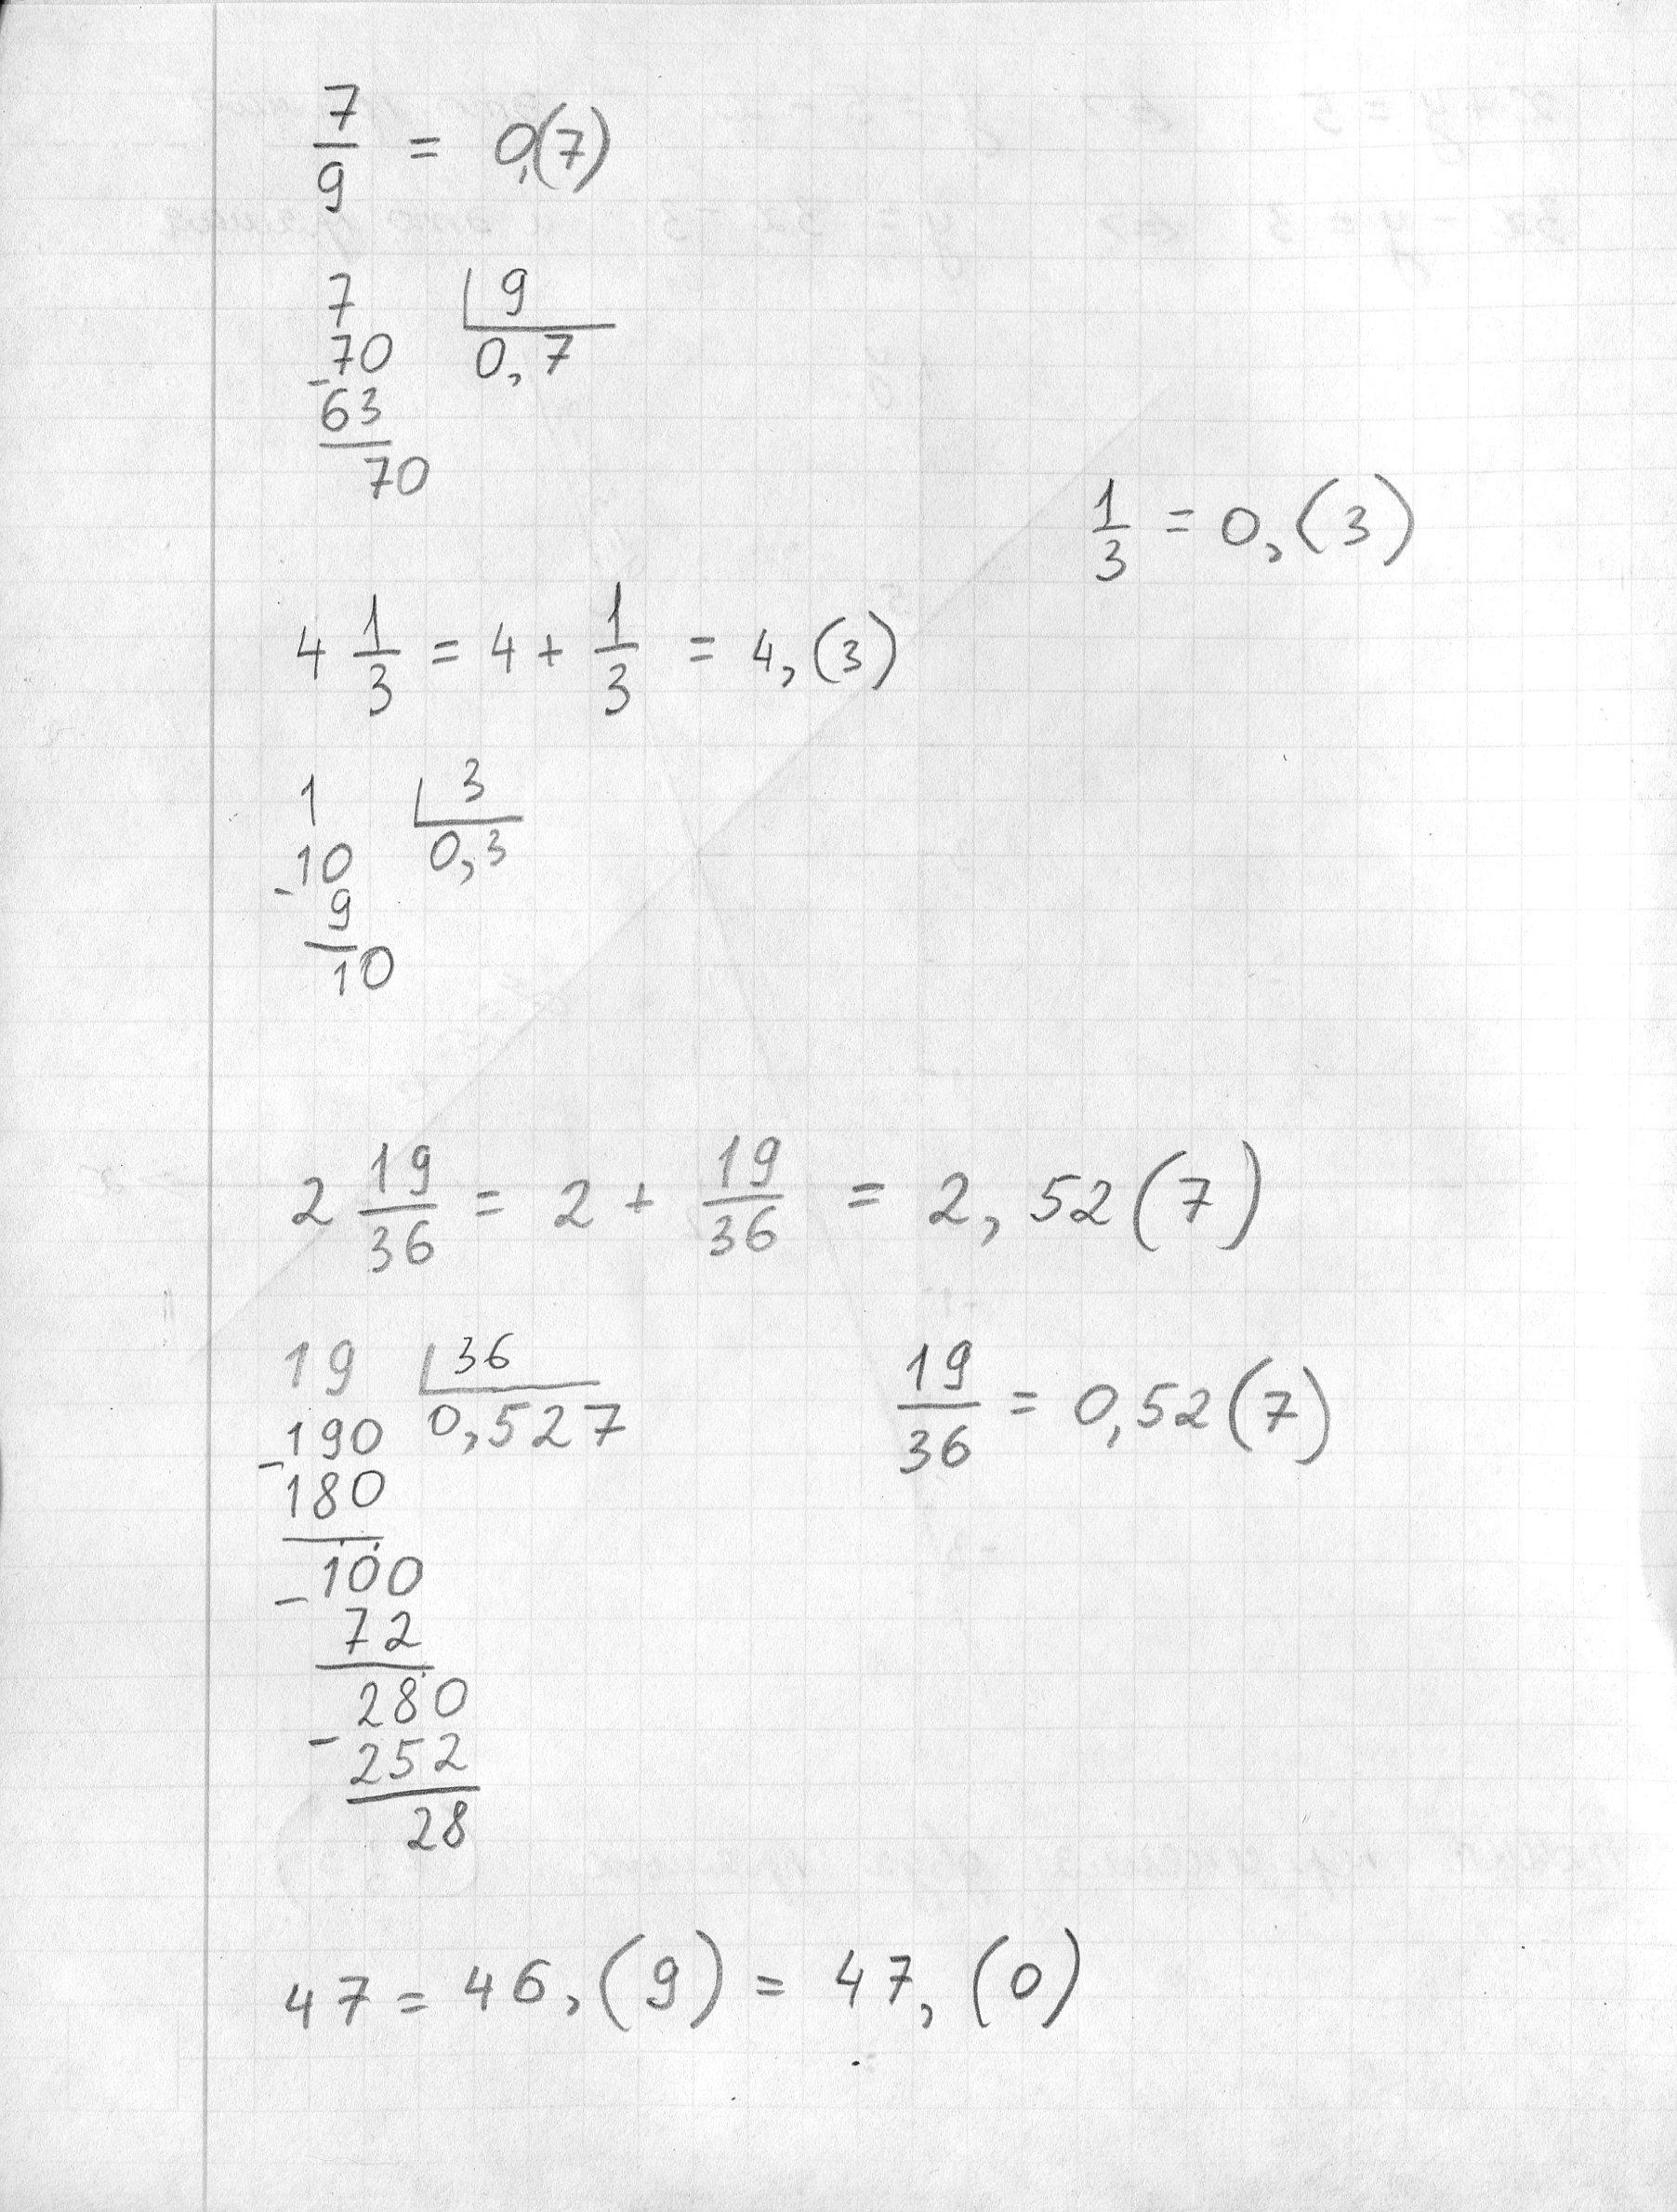 7/9 = 0,(7)
7 | 9
70 0,7
- 63
70
1/3 = 0,(3)
4 1/3 = 4 + 1/3 = 4,(3)
1 | 3
10 0,3
- 9
10
2 19/36 = 2 + 19/36 = 2,52(7)
19 | 36
190 0,527
- 180
100
- 72
280
- 252
28
19/36 = 0,52(7)
47 = 46,(9) = 47,(0)